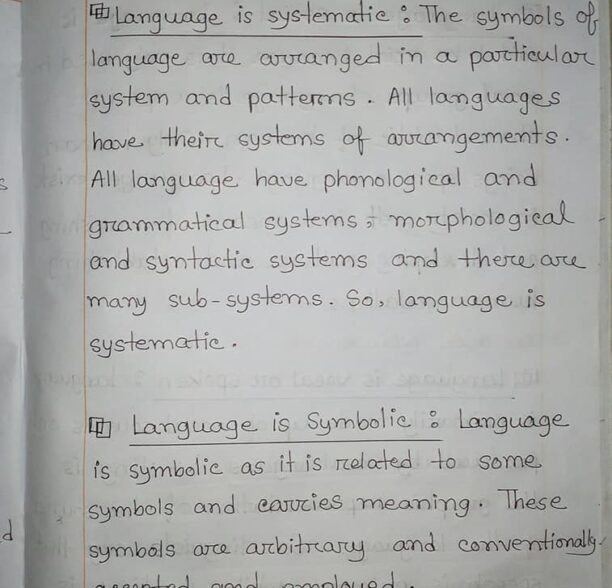 Language is systematic : The symbols of
language are arranged in a particular
system and patterns. All languages
have their systems of arrangements.
All language have phonological and
grammatical systems, morphological
and syntactic systems and there are
many sub-systems. So, language is
systematic.
Language is Symbolic : Language
is symbolic as it is related to some
symbols and carries meaning. These
symbols are arbitrary and conventionally
accepted and employed.